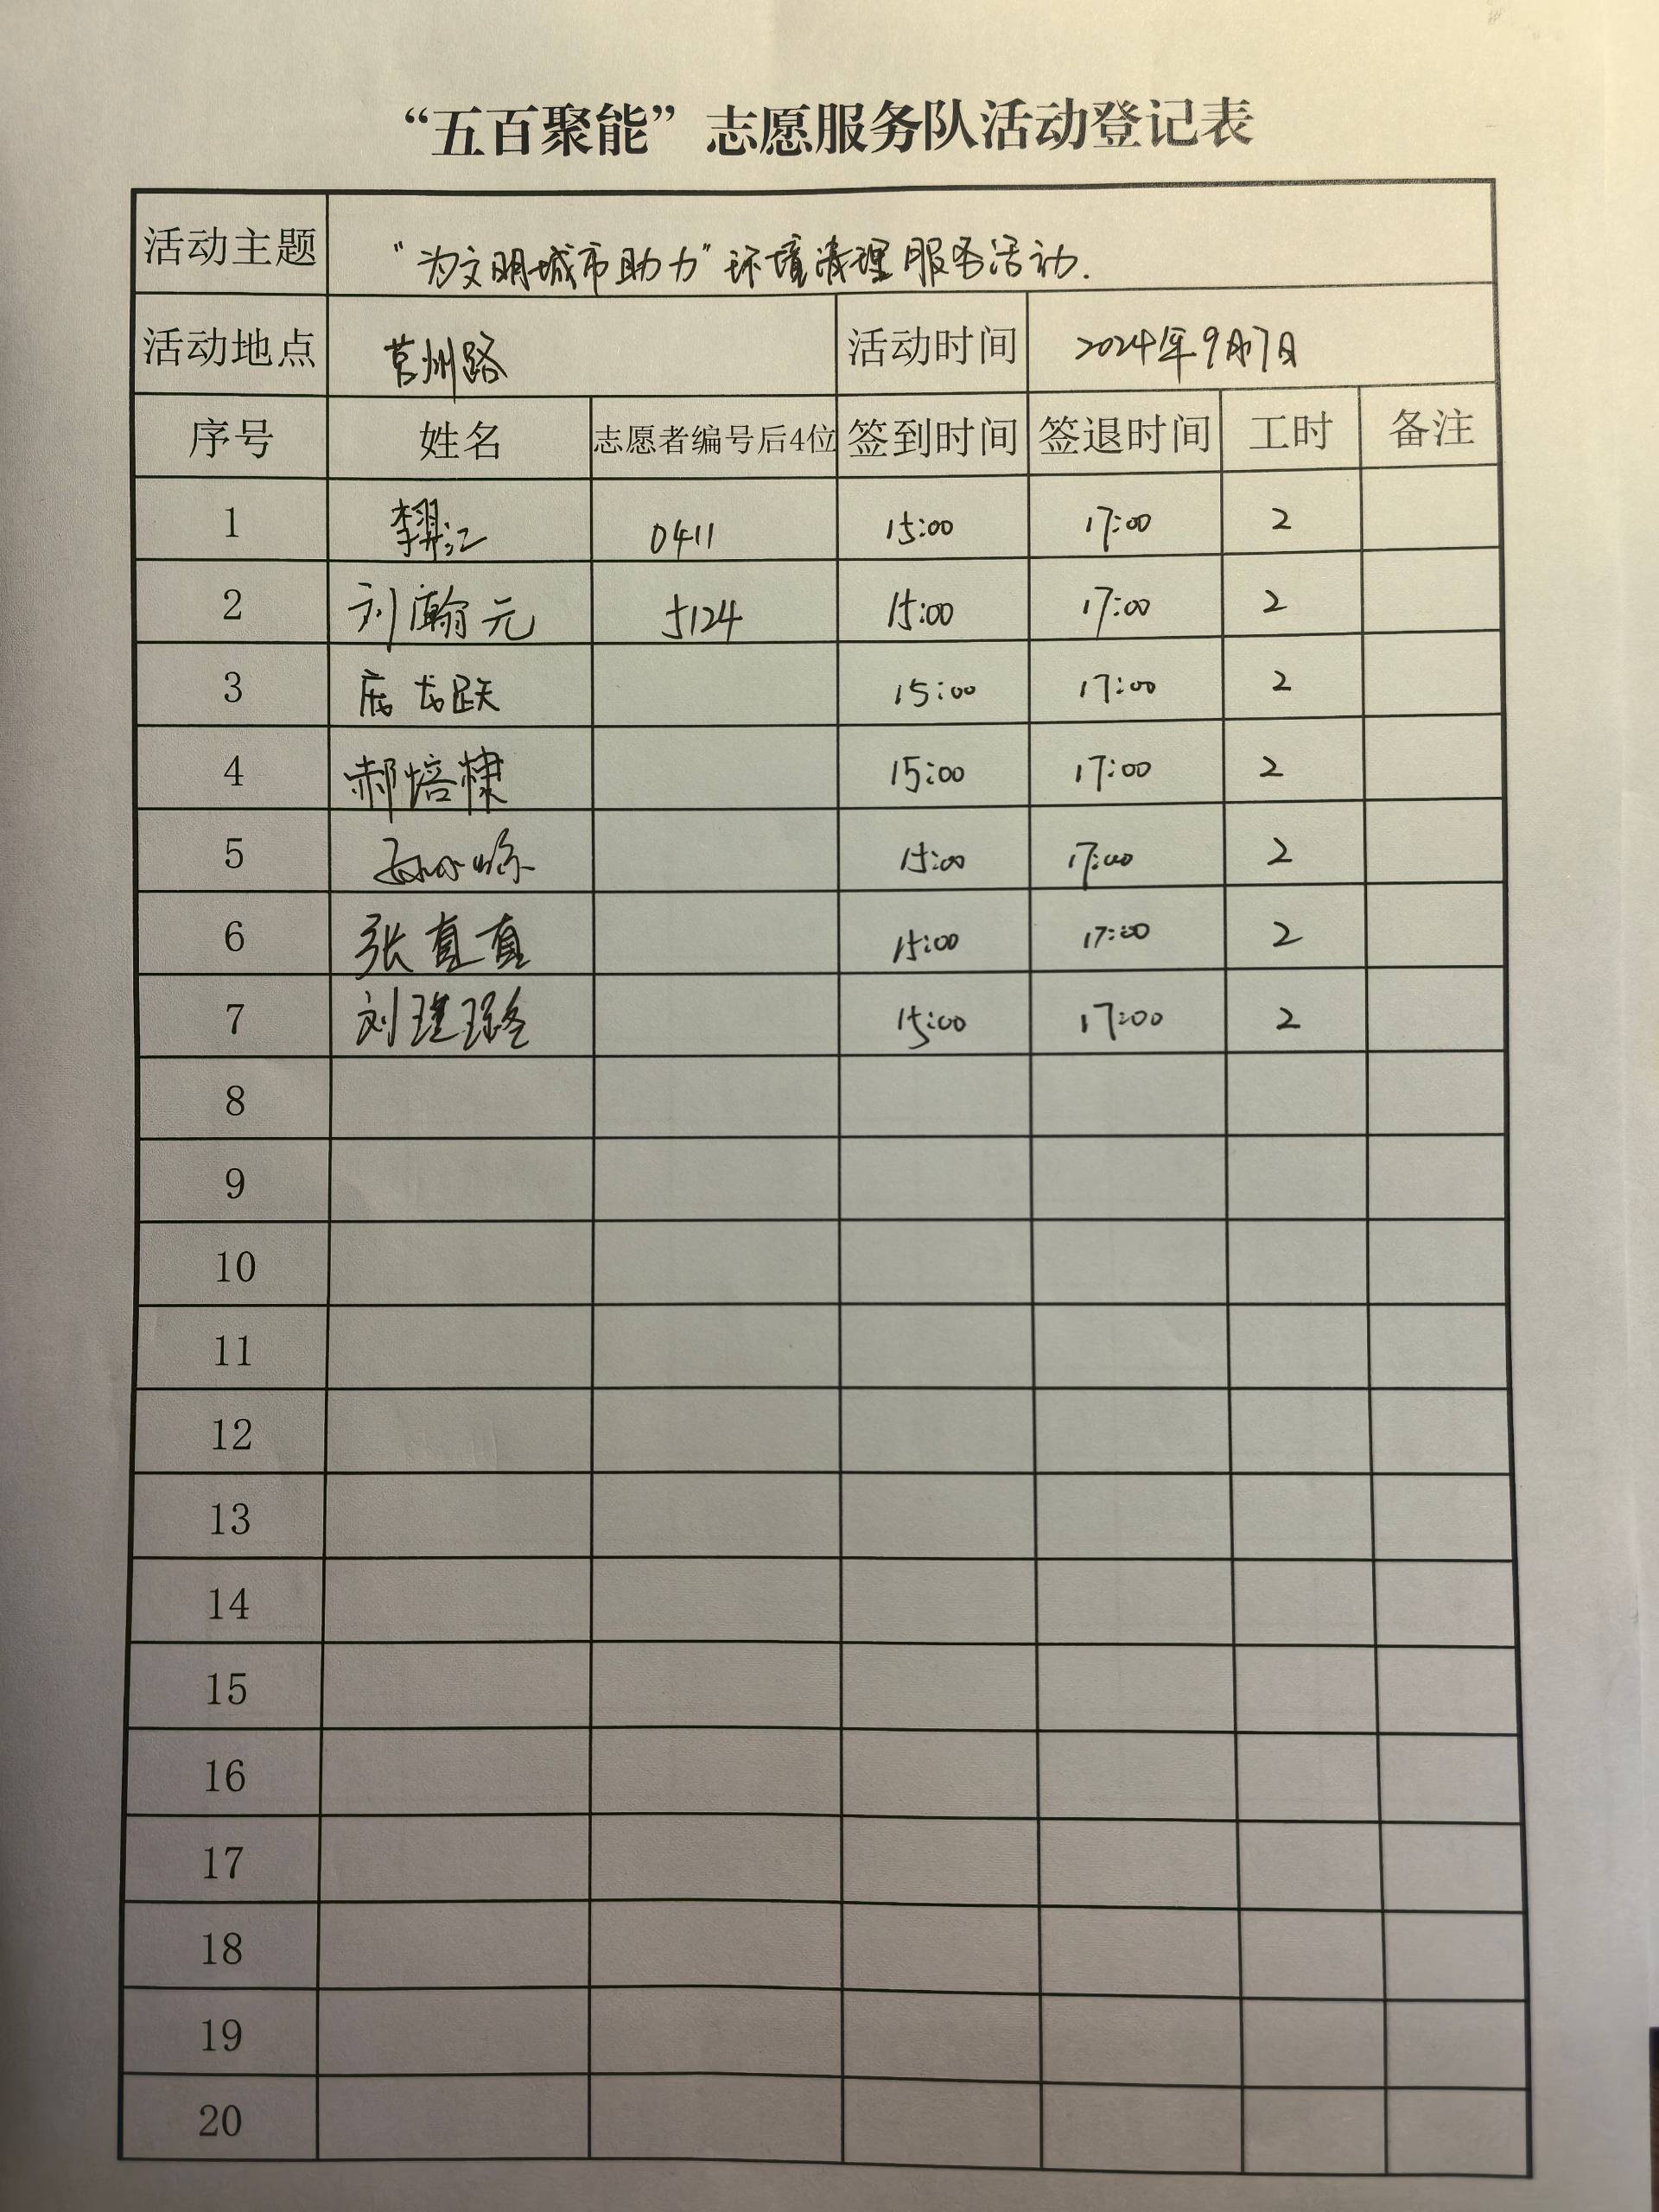 “五百聚能”志愿服务队活动登记表
活动主题 “为文明城市助力”环境清理服务活动.
活动地点 莒州路 活动时间 2024年9月7日
序号 姓名 志愿者编号后4位 签到时间 签退时间 工时 备注
1 李羿江 0411 15:00 17:00 2
2 刘瀚元 5124 15:00 17:00 2
3 龙跃 15:00 17:00 2
4 郝培棣 15:00 17:00 2
5 15:00 17:00 2
6 张真真 15:00 17:00 2
7 刘瑾璐 15:00 17:00 2
8
9
10
11
12
13
14
15
16
17
18
19
20